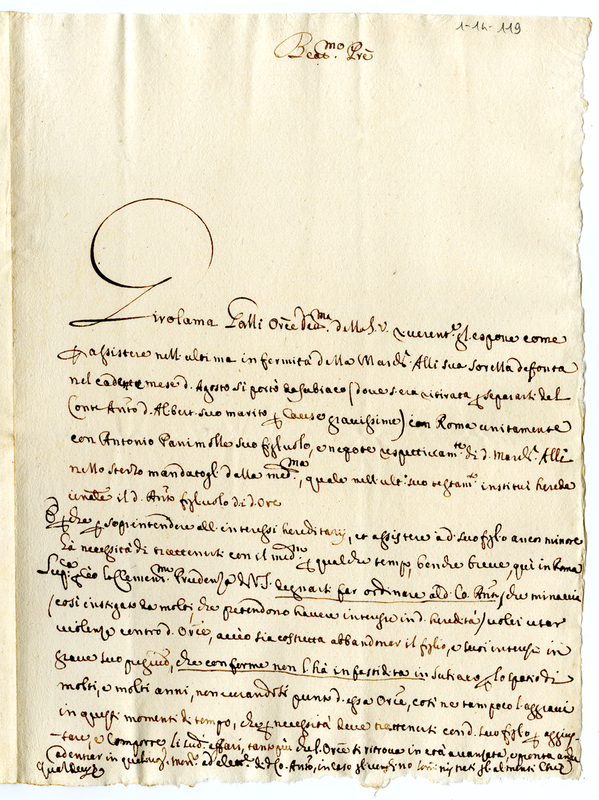 1-14-119
Beat.mo Prē
Girolama Galli Orē. deu.ma della S.V. reverent.e gl'espone come
p assistere nell'ultima infermità della March. Alli sua sorella defonta
nel cad. mese d. Agosto si portò da Subiaco (dove s'era ritirata p separarsi dal
Conte Anto. d. Albert. suo marito p cause gravissime) con Roma unitamente
con Antonio Panimolle suo figluolo, e nepote respectivam.te di d. March. Alli
nello sterzo mandatogli dalla med.ma, quale nell'ult. suo testam.to instituì herede
il d. Anto. figluolo di d. Ore
E p che p soprintendere all'interessi hereditarij, et assistere a d. suo figlo ancor minore
hà necessità di trattenersi con il med.mo p qualche tempo, benche breve, quì in Roma
Sup.ca la Clemen.ma Prudenza di V.S. degnarsi far ordinare al d. Co. Anto. che minaccia
(così instigato da molti, che pretendono havere interesse in d. heredità) voler usar
violenze contro d. Orē, acciò sia costretta abbandonar il figlo, e suoi interessi in
grave suo pregiud.o, che conforme non l'hà infestidita in Subiaco p lo spatio di
molti, e molti anni, non curandosi punto d. essa Orē, così ne tampoco l'aggravi
in questi momenti di tempo, che p necessità deve trattenersi con d. suo figlo p aggius-
tare, e comporre li sud. affari, tanto più che l'Orē si ritrova in età avanzata, e pronta andar
ad entrar in qualsivog. mon. ad elett. di d. Co. Anto., in caso gli venghino sominist rati gl'alimenti Che
Qua Deus